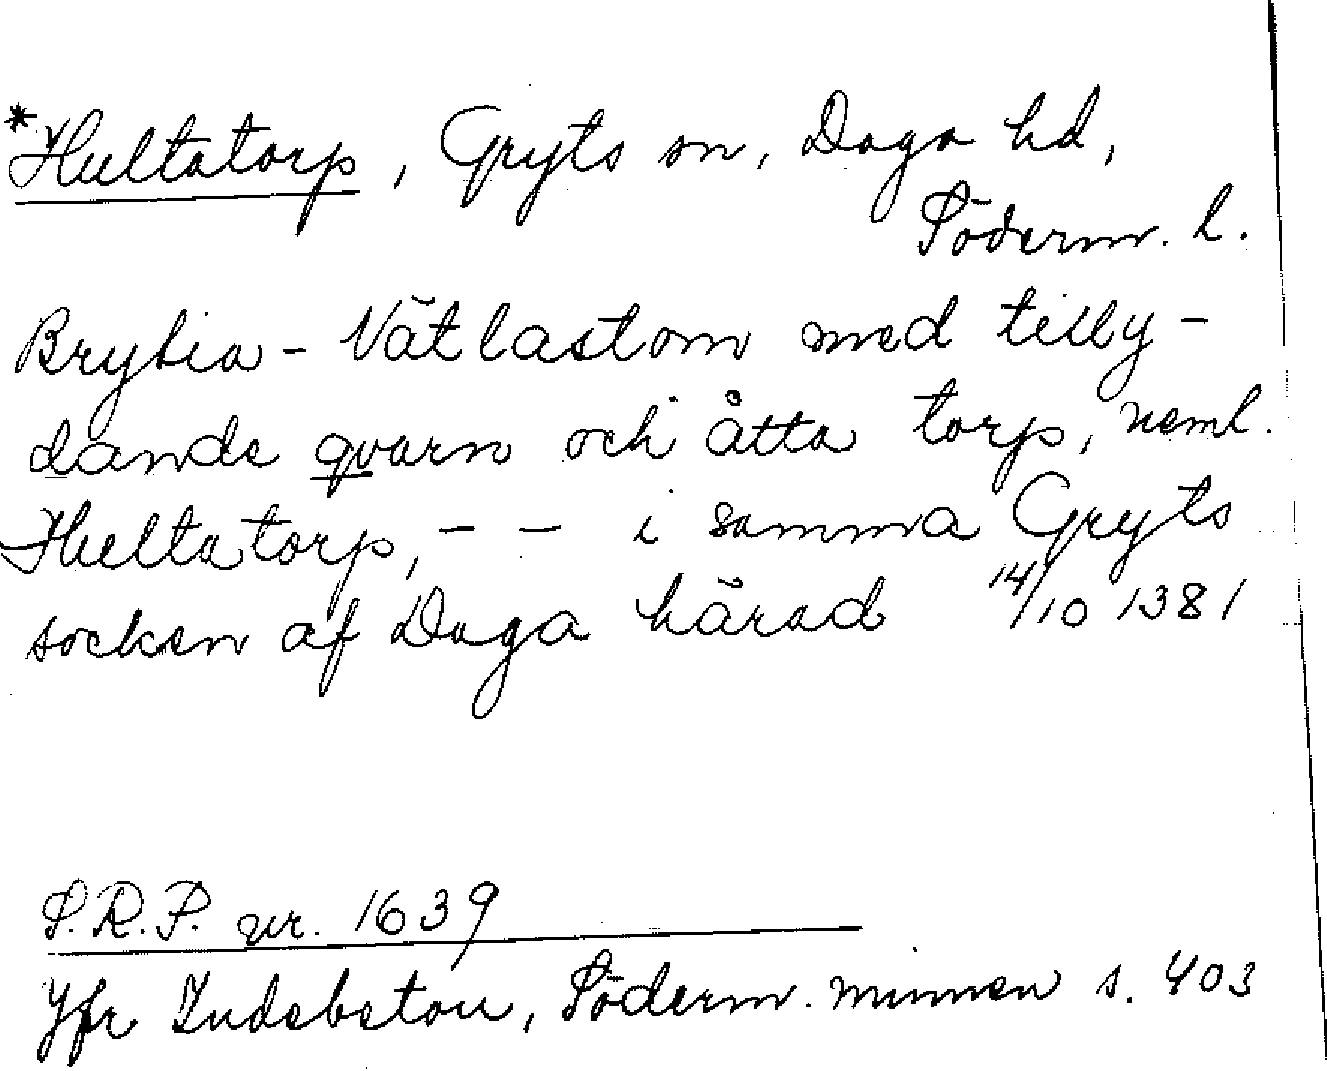 *Hultatorp, Gryts sn, Daga hd,
Söderm. l.
Brytia - Nätlastom med tilly-
dande qvarn och åtta torp, neml.
Hultatorp, - - i samma Gryts
socken af Daga härad 14/10 1381
S.R.P. nr. 1639
Jfr Indebetou, Söderm. minnen s. 403